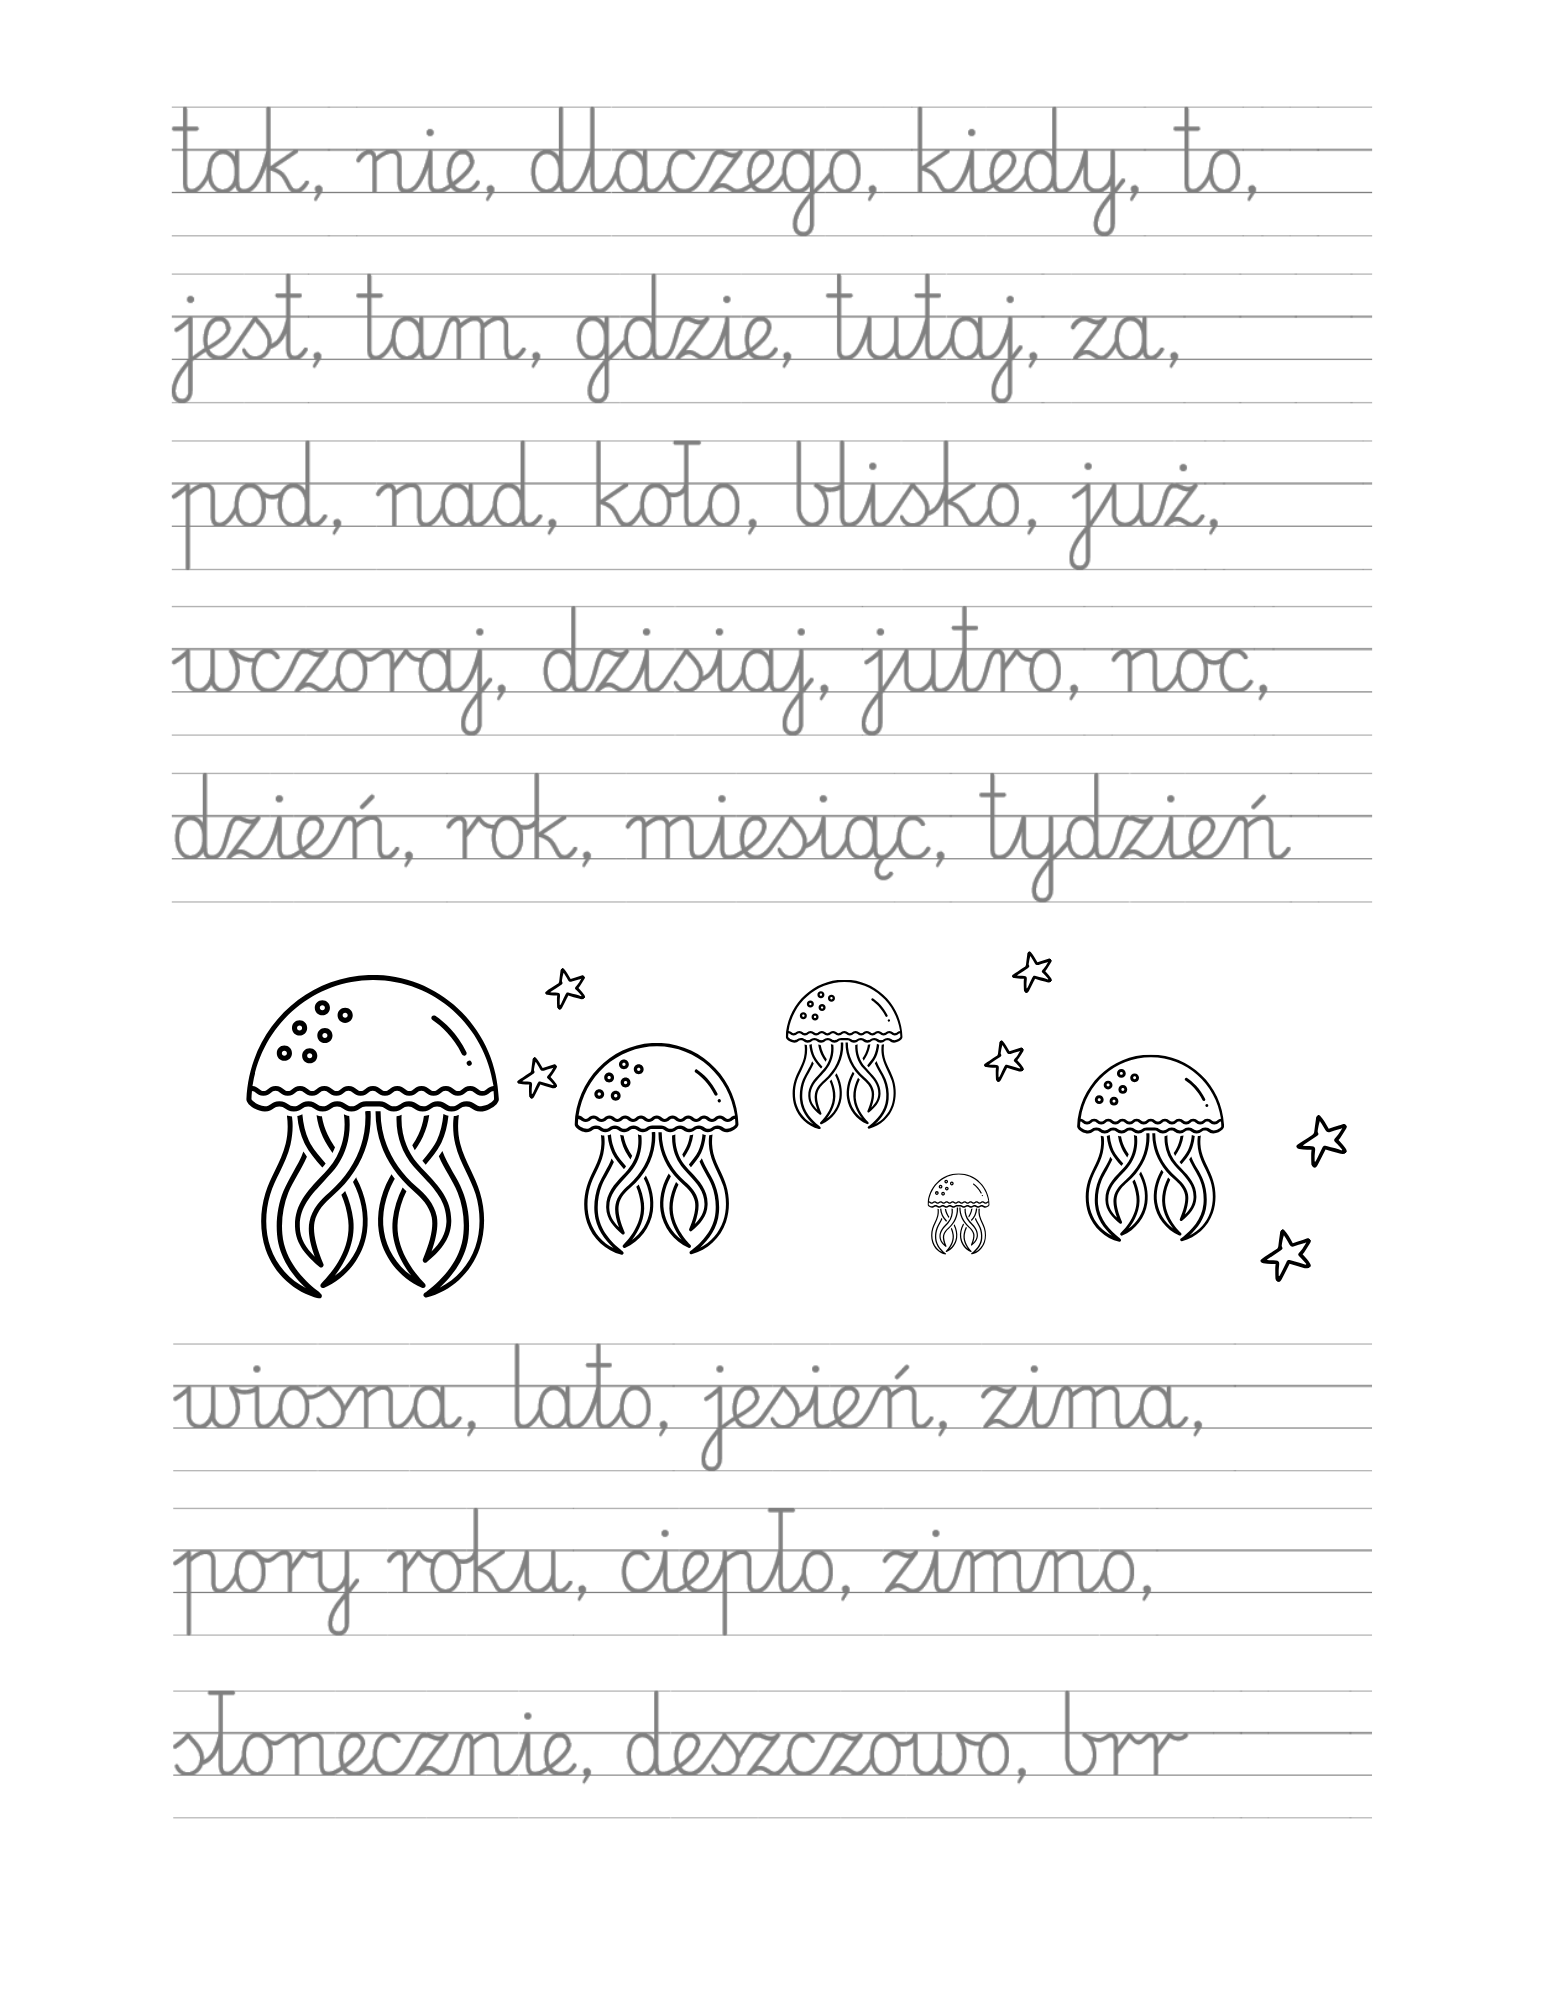 tak, nie, dlaczego, kiedy, to,
jest, tam, gdzie, tutaj, za,
pod, nad, koło, blisko, już,
wczoraj, dzisiaj, jutro, noc,
dzień, rok, miesiąc, tydzień
wiosna, lato, jesień, zima,
pory roku, ciepło, zimno,
słonecznie, deszczowo, brr